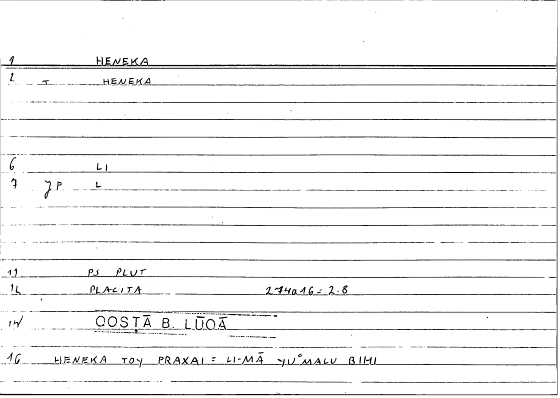 1 HENEKA
2 T HENEKA
6 LI
7 JP L
11 PS PLUT
12 PLACITA 274a16=2.8
14 QOSṬĀ B. LŪQĀ
16 HENEKA TOY PRAXAI = LI-MĀ YU°MALU BIHI